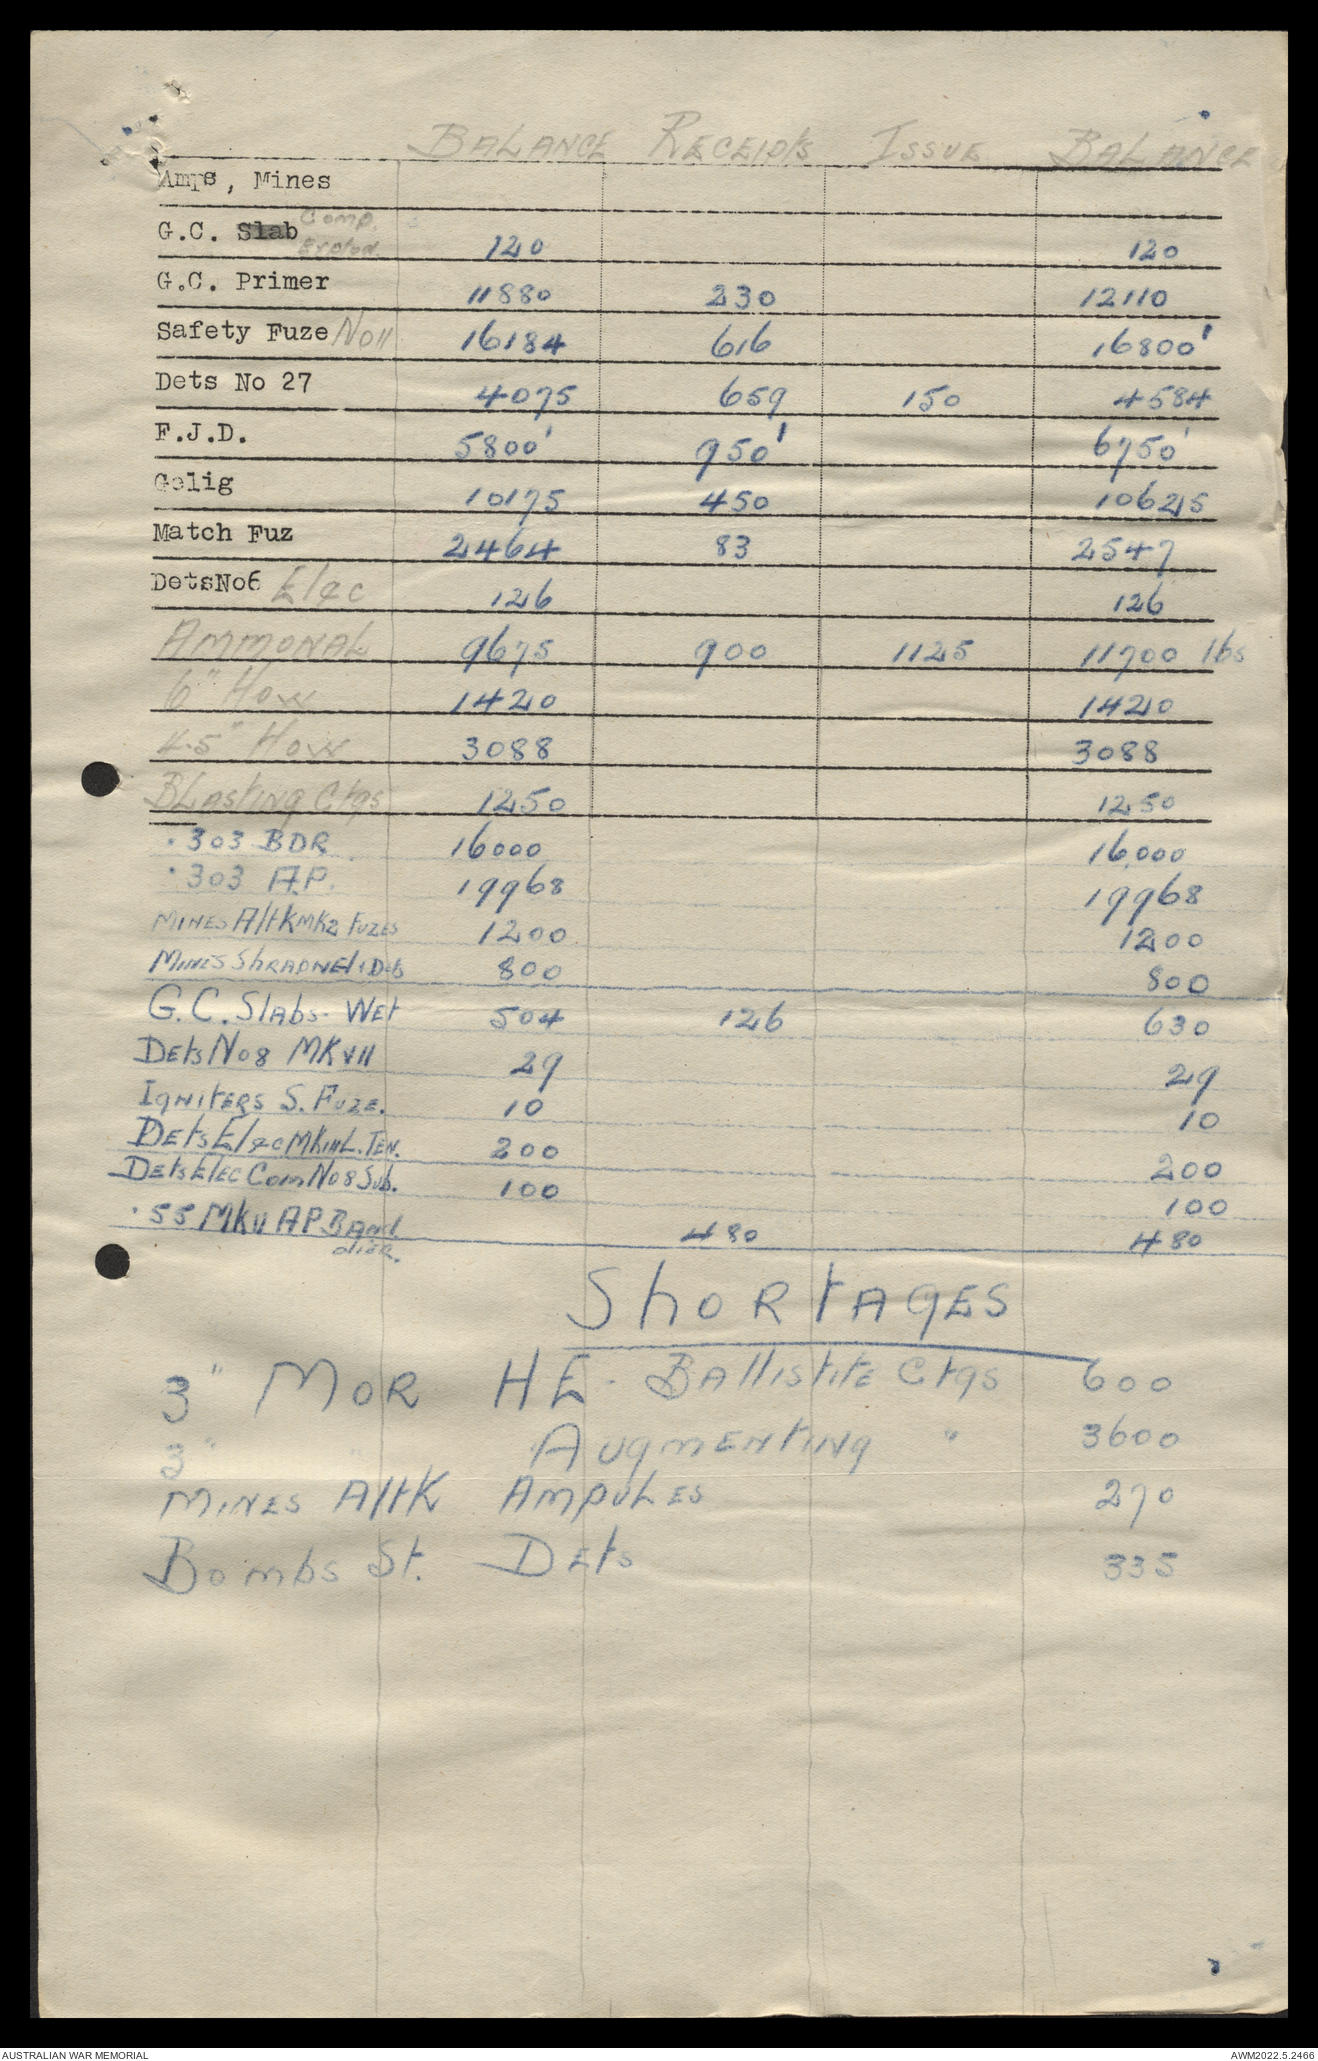 BALANCE RECEIPTS ISSUE BALANCE
Amps, Mines
G.C. Slab Comp. Explod. 120 120
G.C. Primer 11880 230 12110
Safety Fuze No 11 16184 616 16800'
Dets No 27 4075 659 150 4584
F.J.D. 5800' 950' 6750'
Gelig 10175 450 10625
Match Fuz 2464 83 2547
DetsNo6 Elec 126 126
AMMONAL 9675 900 1125 11700 lbs
6" How 1420 1420
4.5" How 3088 3088
BLasting Ctgs 1250 1250
.303 BDR 16000 16,000
.303 A.P. 19968 19968
MINES A/tK MK2 FUZES 1200 1200
MINES ShRAPNEl & Dets 800 800
G.C. Slabs - WEt 504 126 630
DEts No 8 MK VII 29 29
IgNItERS S. FUZE. 10 10
DEts Elec MK III L. TEN. 200 200
DEts ElEC Com No 8 Sub. 100 100
.55 MK II AP BANd
oliER. 480 480
ShORtAgES
3" MOR HE - BAllIStItE Ctgs 600
3" " AUgmENtINg " 3600
MINES A/tK AmpULES 270
Bombs St. DEts 335
AUSTRALIAN WAR MEMORIAL AWM2022.5.2466